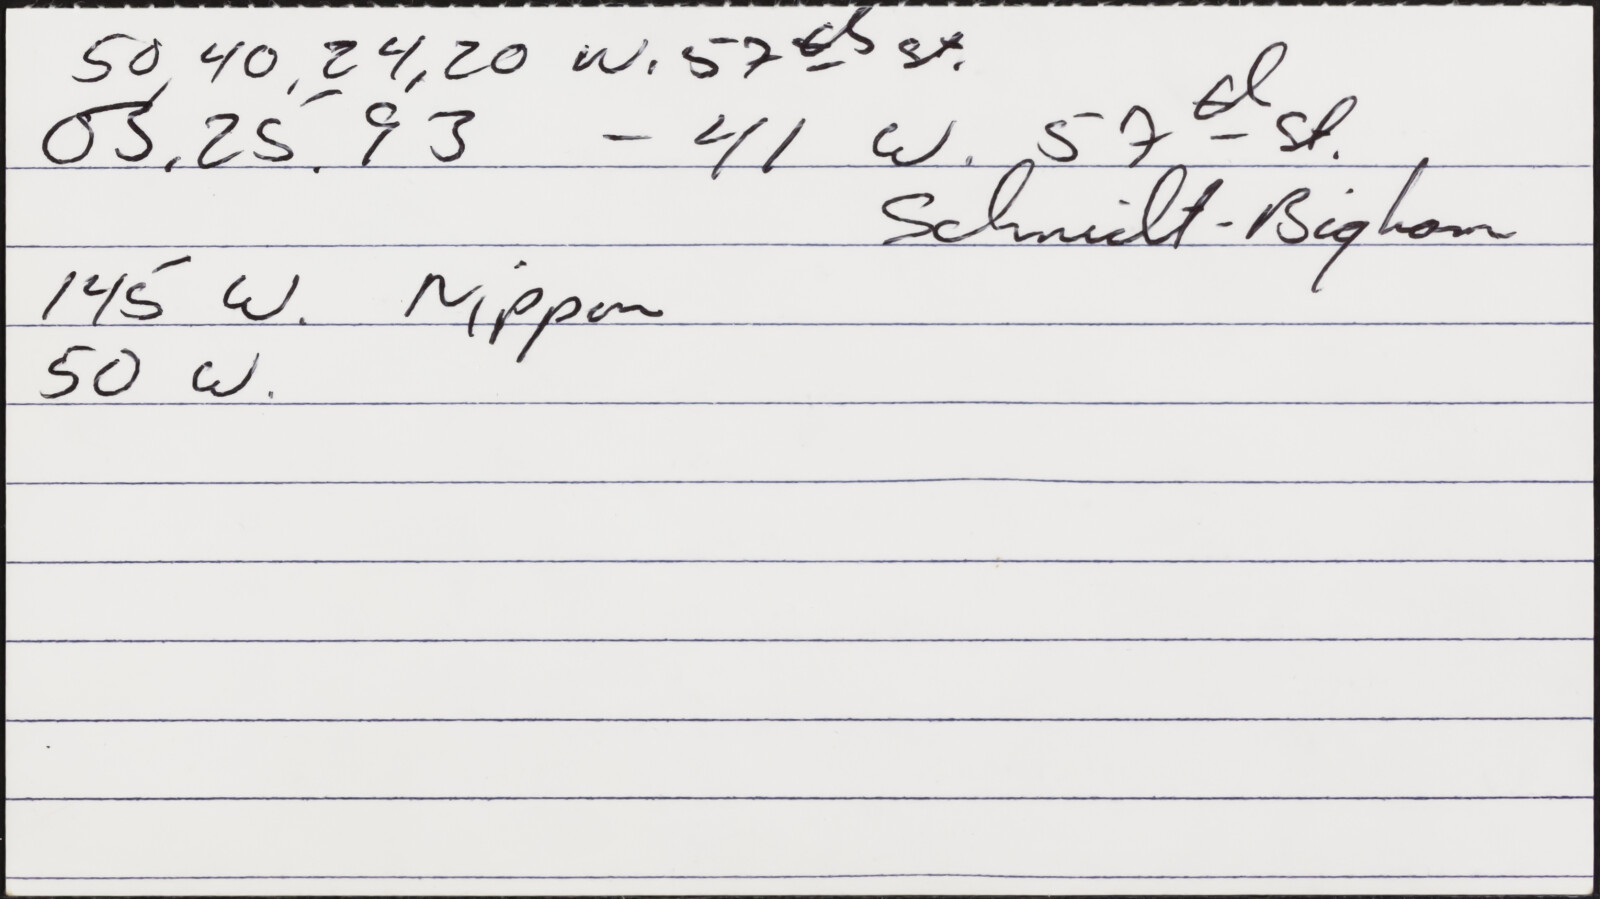 50, 40, 24, 20 W. 57th St.
03.25.93 - 41 W. 57th St.
Schmidt-Bigham
145 W. Nippon
50 W.